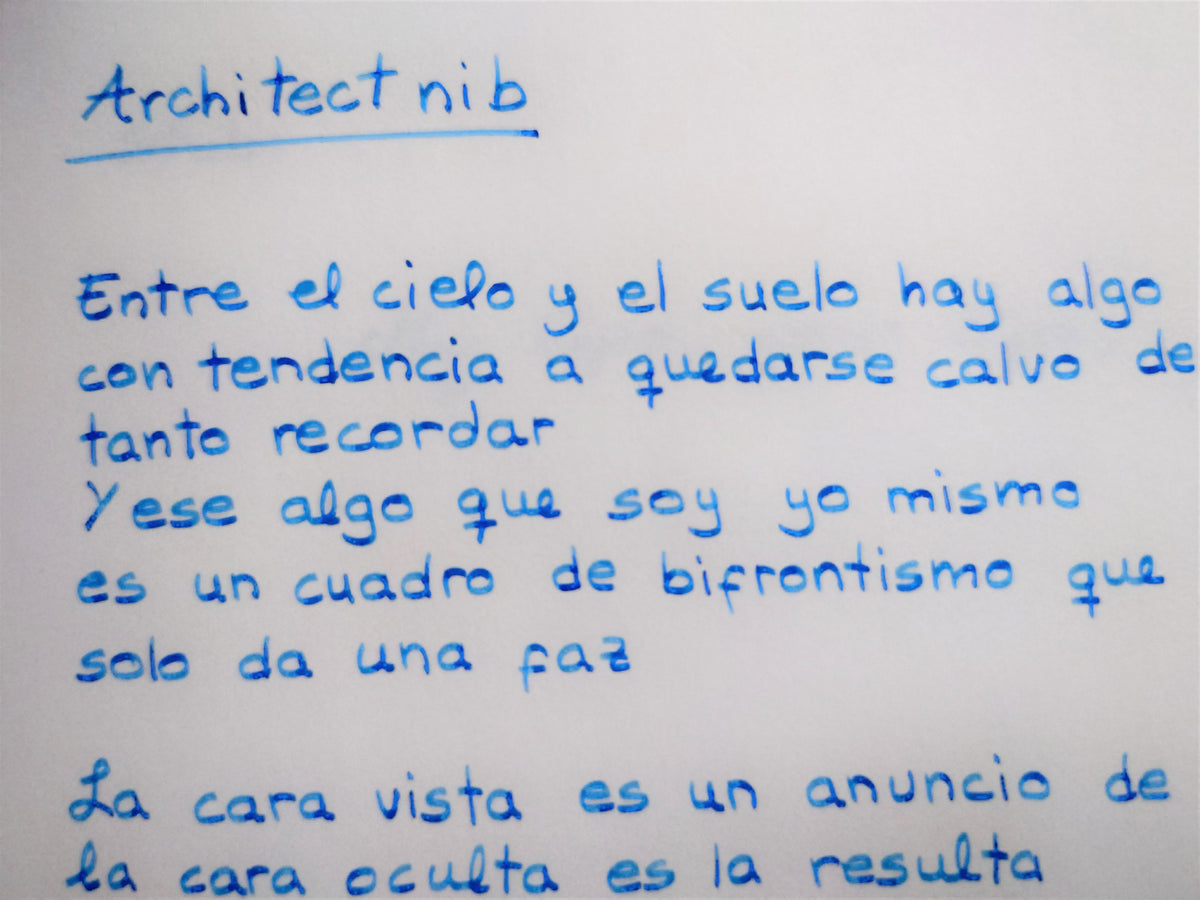 Architect nib
Entre el cielo y el suelo hay algo
con tendencia a quedarse calvo de
tanto recordar
Y ese algo que soy yo mismo
es un cuadro de bifrontismo que
solo da una faz
La cara vista es un anuncio de
la cara oculta es la resulta